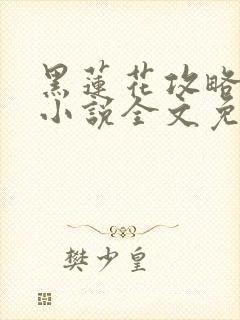 黑蓮花攻略
小說全文免
樊少皇